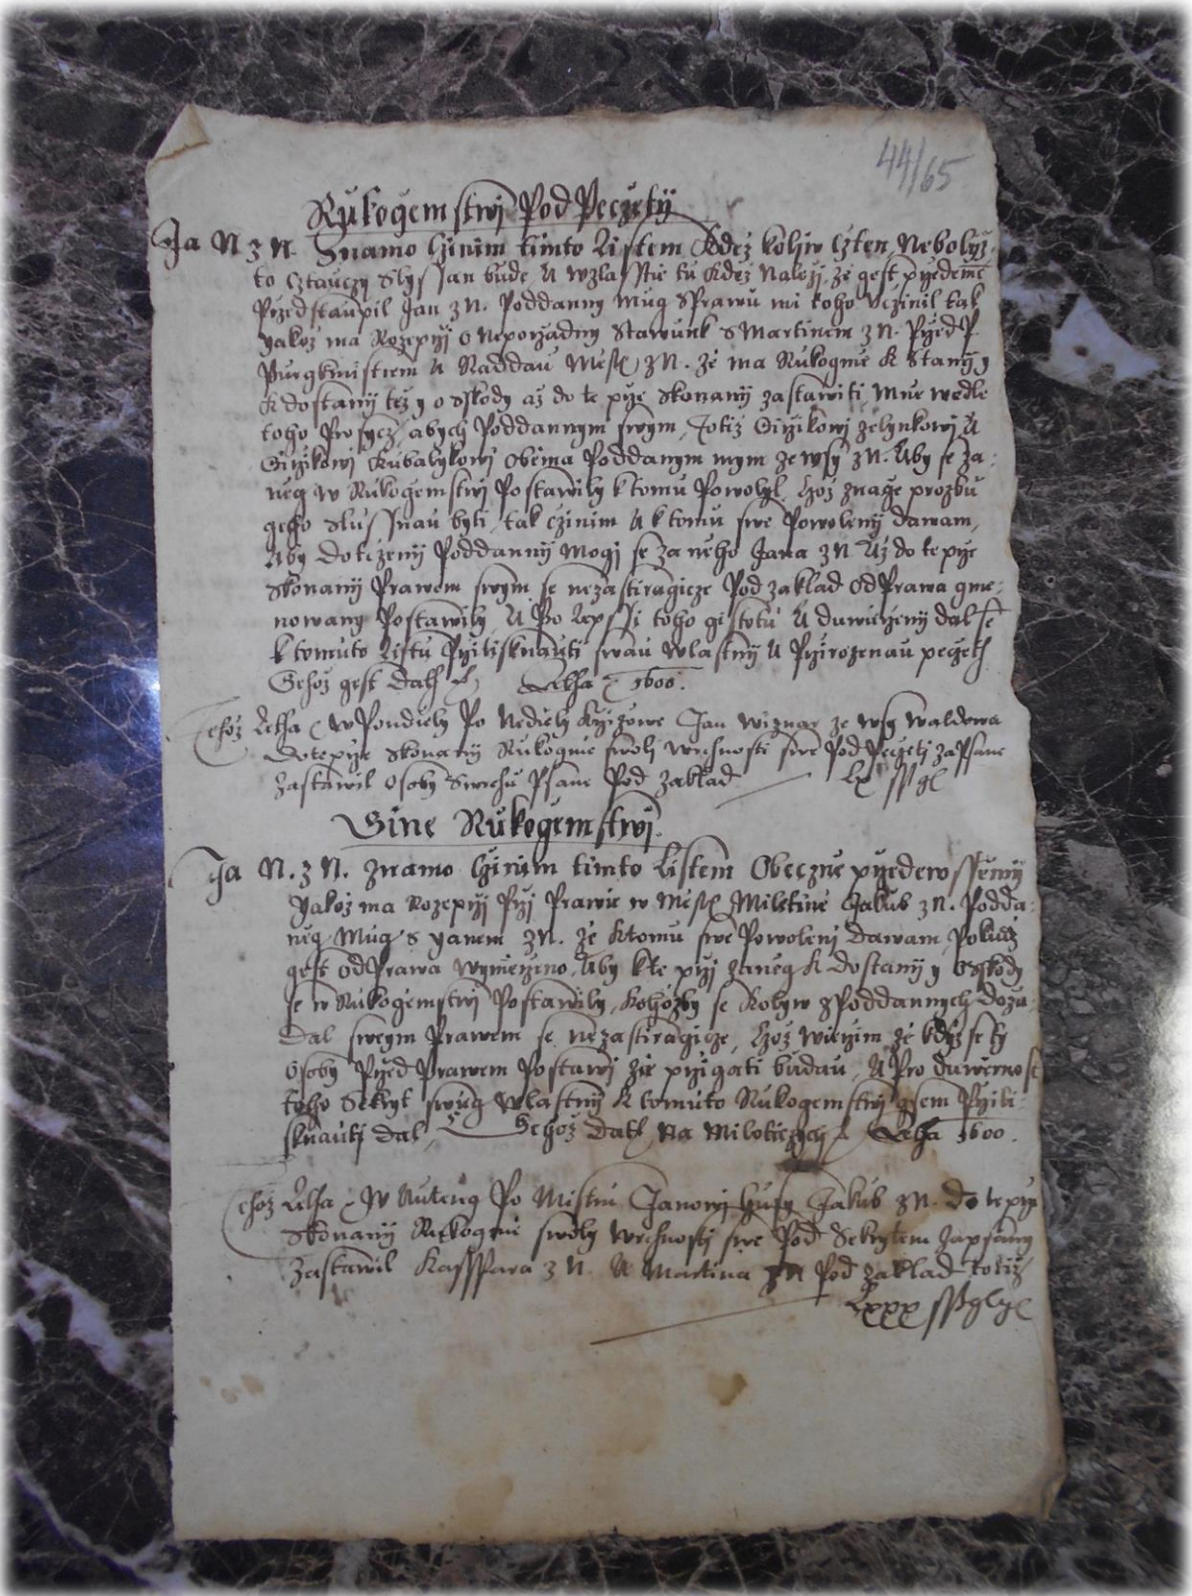 44/65
Rukogemstwj Pod Peczety
Ja N z N. Znamo Czinim timto Listem Kdez koliw Czten, Nebolyz-
to Cztauczy Slyssan bude, A wzlasstie tu Kdez Nalezj, ze gest przedemne
Przedstaupil Jan z N. Poddanny Mug Sprawu mi toho Uczinil tak
yakoz ma Rozeprzj o Neporzadny Stawunk s Martinem z N. Przed P.
Purgkmistrem A Raddau Mest z N. ze ma Rukogme K Stanij y
K dostanij tez y o Sskody az do te prze Skonanij zastawiti, Mne wedle
toho Prosycz, abych Poddannym swym, Totiz Girzikowj Zelynkowj A
Girzikowj Kubalykowj Obema Poddanym mym ze wsy z N. Aby se Za-
neg w Rukogemstwj Postawily k tomu Powolyl, Czoz znage prozbu
geho Slussnau byti, tak czinim A k tomu swe Powolenij dawam,
Aby dotczenij Poddannij Mogj se za neho Jana z N Az do te prze
Skonanij Prawem swym se nezastiragicze Pod zaklad Od Prawa gme-
nowany Postawily, A Pro Lepssi toho gistotu A duwierzenij dal se
k tomuto Listu Przitisknauti swau Wlastnij A Przirozenau peczeth
Gehoz gest Dath Letha 1600.
Tehoz Letha w Pondiely Po Nediely Krzizowe Jan Wiznar ze wsy Waldowa
Doteprze Skonanij Rukogme swolj wrchnosti swe Pod Peczetj zapsane
Zastawil Osoby Swrchu Psane Pod zaklad Lx ssk gr
Gine Rukogemstwj.
Ja N. z N. Znamo Czinim timto Listem Obeczne przedewssemij
Yakoz ma Rozeprzj Przj Prawie w Mest Miletine Jakub z N. Podda-
neg Mug s yanem z N. ze K tomu swe Powolenj Dawam, Pokudz
gest od Prawa wymerzeno, Aby k te przj zaneg K dostanij y o Sskody
se w Rukogemstwj Postawily, Kohozby se Kolyw z Poddannych Dozu-
dal sweym Prawem se nezastiragicze, Czoz wierzim ze kdyz se ty
Osoby Przed Prawem Postawj ze przigati budau, A Pro duwernost
toho Sekryt swug Wlastnij K tomuto Rukogemstwj gsem Przitis-
knautj dal, Gehoz Dath, Na Miloticzych Letha 1600.
Tehoz Letha w Auterey Po Mistru Janowj Husy Jakub z N. Do te prze
Skonanij Rukogme swoly wrchnostj swe Pod Sekrytem Zapsany
Zastawil Kassspara z N. A Martina z N Pod zaklad totiz
Lxxx ssk gr